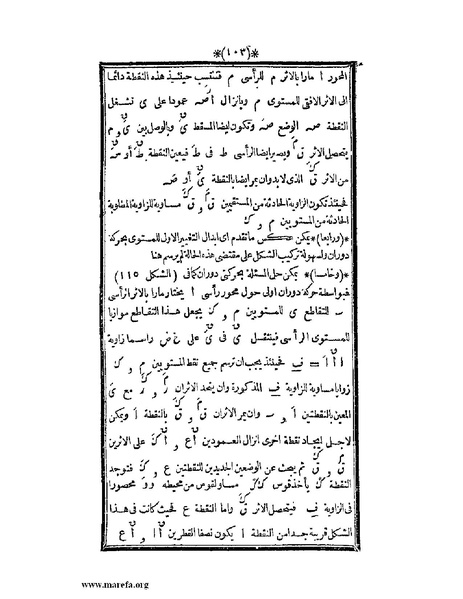 *(١٠٣)*
المحور ا مارا بالاثر م للرأسى م فتنتسب حينئذ هذه النقطة دائما
الى الاثر الافقى للمستوى م وبانزال عمودا على ى تشغل
النقطة صه الوضع صه وتكون ايضا المسقط ى وبالوصل بين ى و م
يتحصل الاثر ق ويصير ايضا الرأسى ط فى ط فيعين النقطة ط أو
من الاثر ق الذى لا بد وان يمر ايضا بالنقطة أو صه
فحينئذ تكون الزاوية الحادثة من المستقيمين ق و ق مساوية للزاوية المطلوبة
الحادثة من المستويين م و ك
*(ورابعا)* يمكن عكس ما تقدم اى ابدال التغيير الاول للمستوى بحركة
دوران ولسهولة تركيب الشكل على مقتضى هذه الحالة لم يرسم هنا
*(وخامسا)* يمكن حل المسئلة بحركتى دوران كما فى (الشكل ١١٥)
فبواسطة حركة دوران اولى حول محور رأسى ا يختار مارا بالاثر الرأسى
للتقاطع ى للمستويين م و ك يجعل هذا التقاطع موازيا
للمستوى الرأسى فينتقل ى فى ى على خ ض راسما زاوية
فحينئذ يجب ان ترسم جميع نقط المستويين م و ك
زوايا مساوية للزاوية ف المذكورة وان يتحد الاثران مع ى
المعين بالنقطتين ا و وان يمر الاثران ق و ق بالنقطة ا ويمكن
لاجل ايجاد نقطة اخرى انزال العمودين و على الاثرين
ق و ق ثم يبحث عن الوضعين الجديدين للنقطتين ع و ك فتوجد
النقطة ك بأخذ قوس مساو لقوس من محيطه محصورا
فى الزاوية ف فيتحصل الاثر ق واما النقطة ع فحيث كانت فى هذا
الشكل قريبة جدا من النقطة ا يكون نصفا القطرين و
www.marefa.org